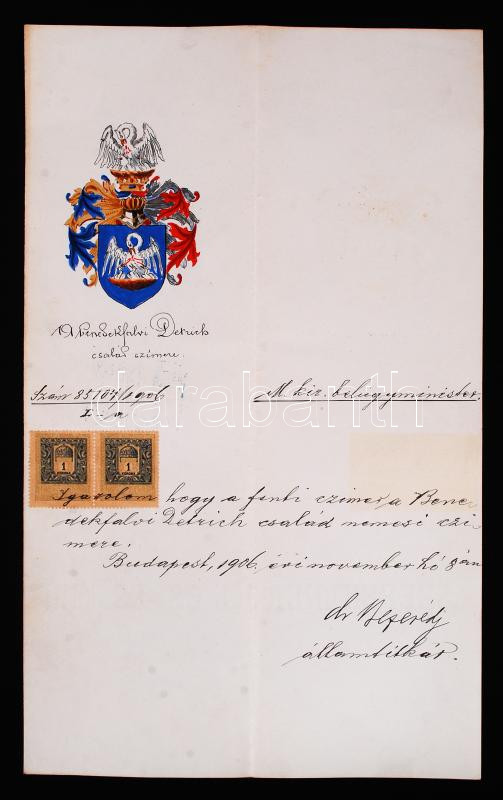 A benedekfalvi Detrich
család czimere.
Szám 85104/1906
I-a
M. kir. belügyminister.
darabanth
1 1
Igazolom hogy a fenti czimer a Bene-
dekfalvi Detrich család nemesi czi-
mere.
Budapest, 1906. évi november hó 8án
dr
államtitkár.